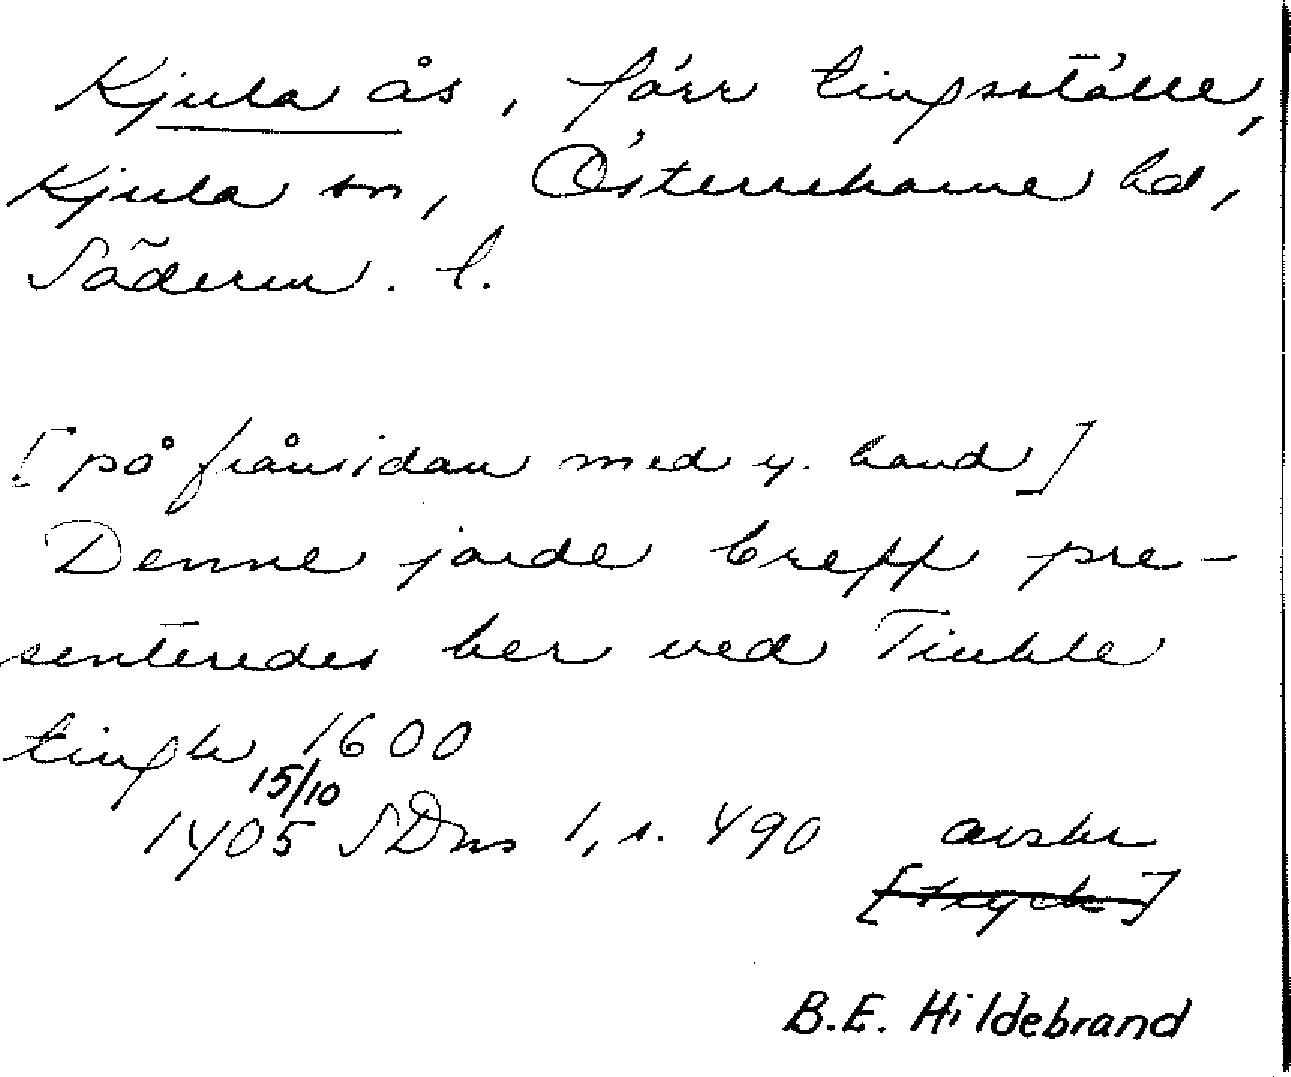 Kjula ås, förr tingsställe,
Kjula sn, Österrekarne hd,
Söderm. l.
[på frånsidan med y. hand]
Denne jorde breff pre-
senteredes her ved Tiukle
tingh 1600
15/10
1405 SDns 1, s. 490 avskr
[tryck]
B.E. Hildebrand